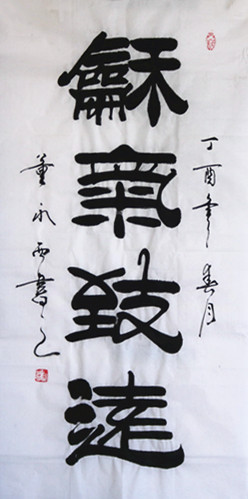 丁酉年春月
龢氣致遠
董永西書之